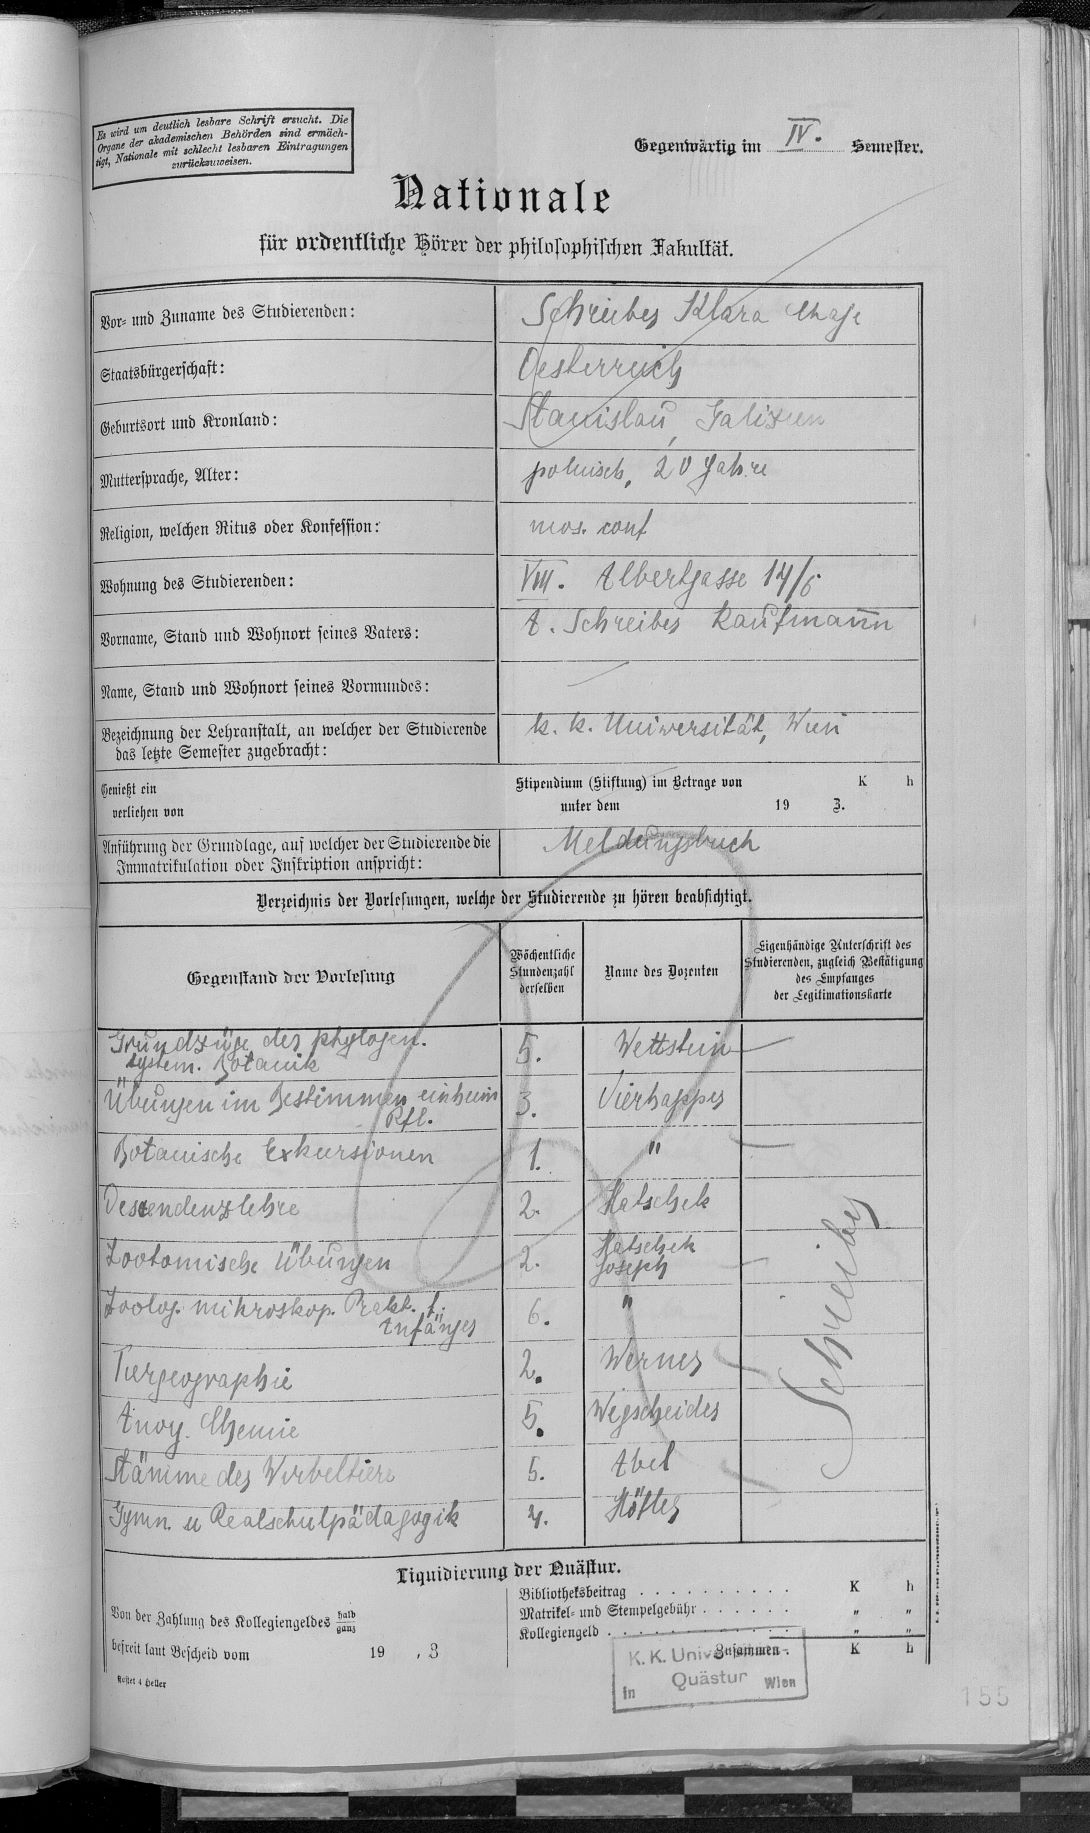 Es wird um deutlich lesbare Schrift ersucht. Die
Organe der akademischen Behörden sind ermäch-
tigt, Nationale mit schlecht lesbaren Eintragungen
zurückzuweisen.
Gegenwärtig im IV. Semester.
Nationale
für ordentliche Hörer der philosophischen Fakultät.
Vor- und Zuname des Studierenden: Schreiber Klara Chaje
Staatsbürgerschaft: Oesterreich
Geburtsort und Kronland: Stanislau, Galizien
Muttersprache, Alter: polnisch, 20 Jahre
Religion, welchen Ritus oder Konfession: mos. conf
Wohnung des Studierenden: VIII. Albertgasse 17/6
Vorname, Stand und Wohnort seines Vaters: A. Schreiber Kaufmann
Name, Stand und Wohnort seines Vormundes:
Bezeichnung der Lehranstalt, an welcher der Studierende
das letzte Semester zugebracht: k. k. Universität, Wien
Genießt ein Stipendium (Stiftung) im Betrage von K h
verliehen von unter dem 19 3.
Anführung der Grundlage, auf welcher der Studierende die
Immatrikulation oder Inskription anspricht: Meldungsbuch
Verzeichnis der Vorlesungen, welche der Studierende zu hören beabsichtigt.
Gegenstand der Vorlesung
Wöchentliche
Stundenzahl
derselben
Name des Dozenten
Eigenhändige Unterschrift des
Studierenden, zugleich Bestätigung
des Empfanges
der Legitimationskarte
Grundzüge der phylogen.
system. Botanik 5. Wettstein
Übungen im Bestimmen einheim
Pfl. 3. Vierhapper
Botanische Exkursionen 1. "
Deszendenzlehre 2. Hatschek
Zootomische Übungen 2. Hatschek
Joseph
Zoolog. mikroskop. Prakt. f.
Anfänger 6. "
Tiergeographie 2. Werner
Anorg. Chemie 5. Wegscheider
Stämme der Wirbeltiere 5. Abel
Gymn. u Realschulpädagogik 4. Höfler
Schreiber
Liquidierung der Quästur.
Von der Zahlung des Kollegiengeldes halb
ganz
befreit laut Bescheid vom 19 . 3
Bibliotheksbeitrag . . . . . . . . . . K h
Matrikel- und Stempelgebühr . . . . . . " "
Kollegiengeld . . . . . . . . . . . . " "
Zusammen . K h
Kostet 4 Heller
K. K. Universitäts-
Quästur
in Wien
155